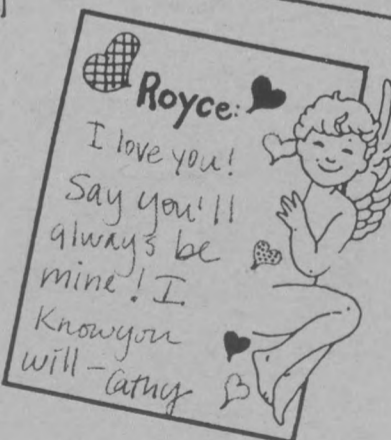 Royce:
I love you!
Say you'll
always be
mine! I
Know you
will - Cathy